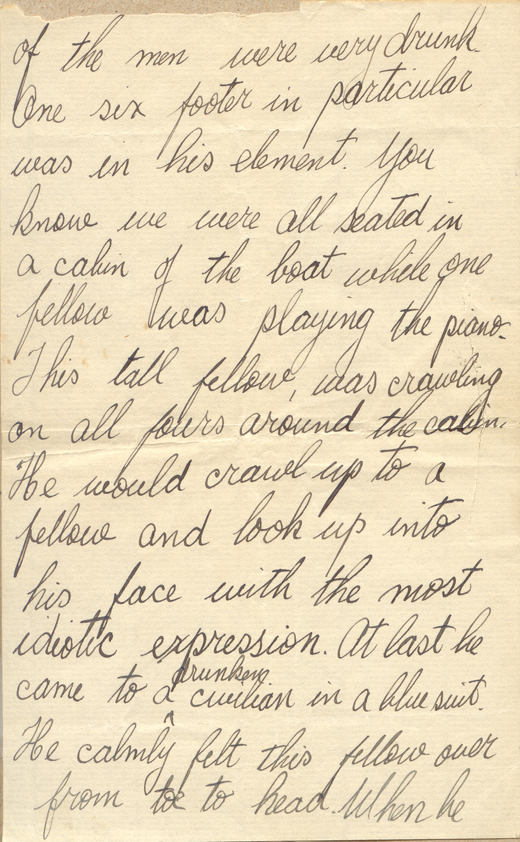 of the men were very drunk.
One six footer in particular
was in his element. You
know we were all seated in
a cabin of the boat while one
fellow was playing the piano.
This tall fellow, was crawling
on all fours around the cabin.
He would crawl up to a
fellow and look up into
his face with the most
idiotic expression. At last he
drunken
came to a ^ civilian in a blue suit.
He calmly felt this fellow over
from toe to head. When he